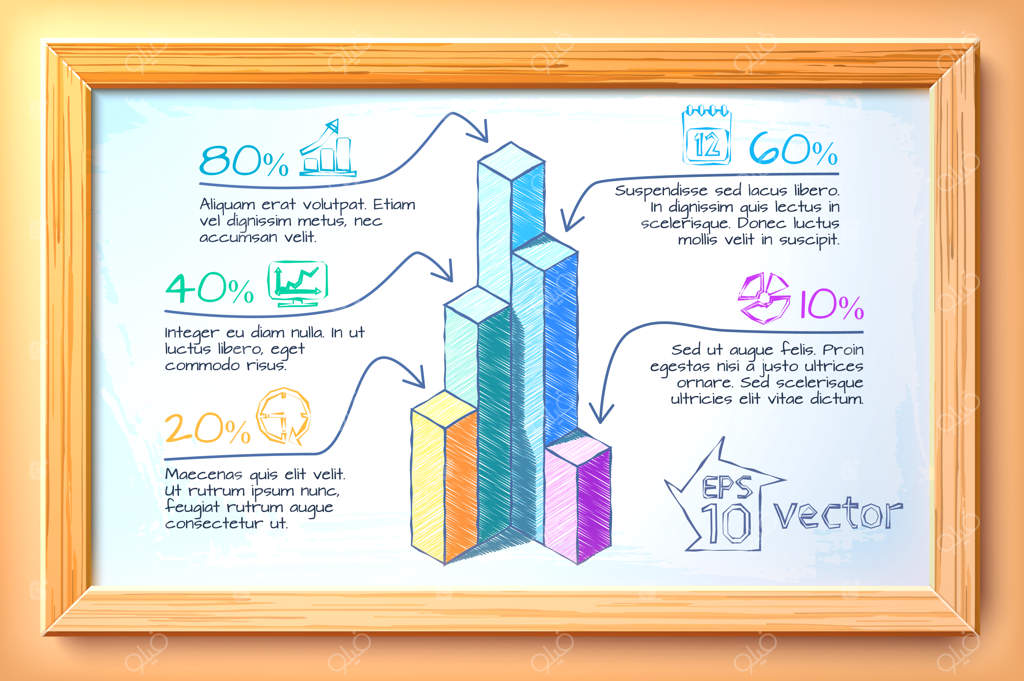 80%
Aliquam erat volutpat. Etiam
vel dignissim metus, nec
accumsan velit.
40%
Integer eu diam nulla. In ut
luctus libero, eget
commodo risus.
20%
Maecenas quis elit velit.
Ut rutrum ipsum nunc,
feugiat rutrum augue
consectetur ut.
12
60%
Suspendisse sed lacus libero.
In dignissim quis lectus in
scelerisque. Donec luctus
mollis velit in suscipit.
10%
Sed ut augue felis. Proin
egestas nisi a justo ultrices
ornare. Sed scelerisque
ultricies elit vitae dictum.
EPS
10
vector